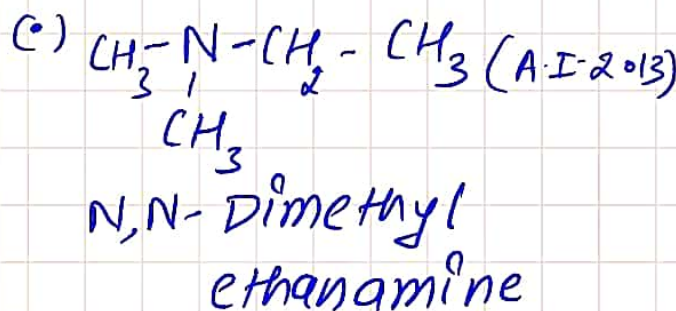 (•) CH₃-N-CH₂-CH₃ (A.I-2013)
|
CH₃
N,N-Dimethyl
ethanamine